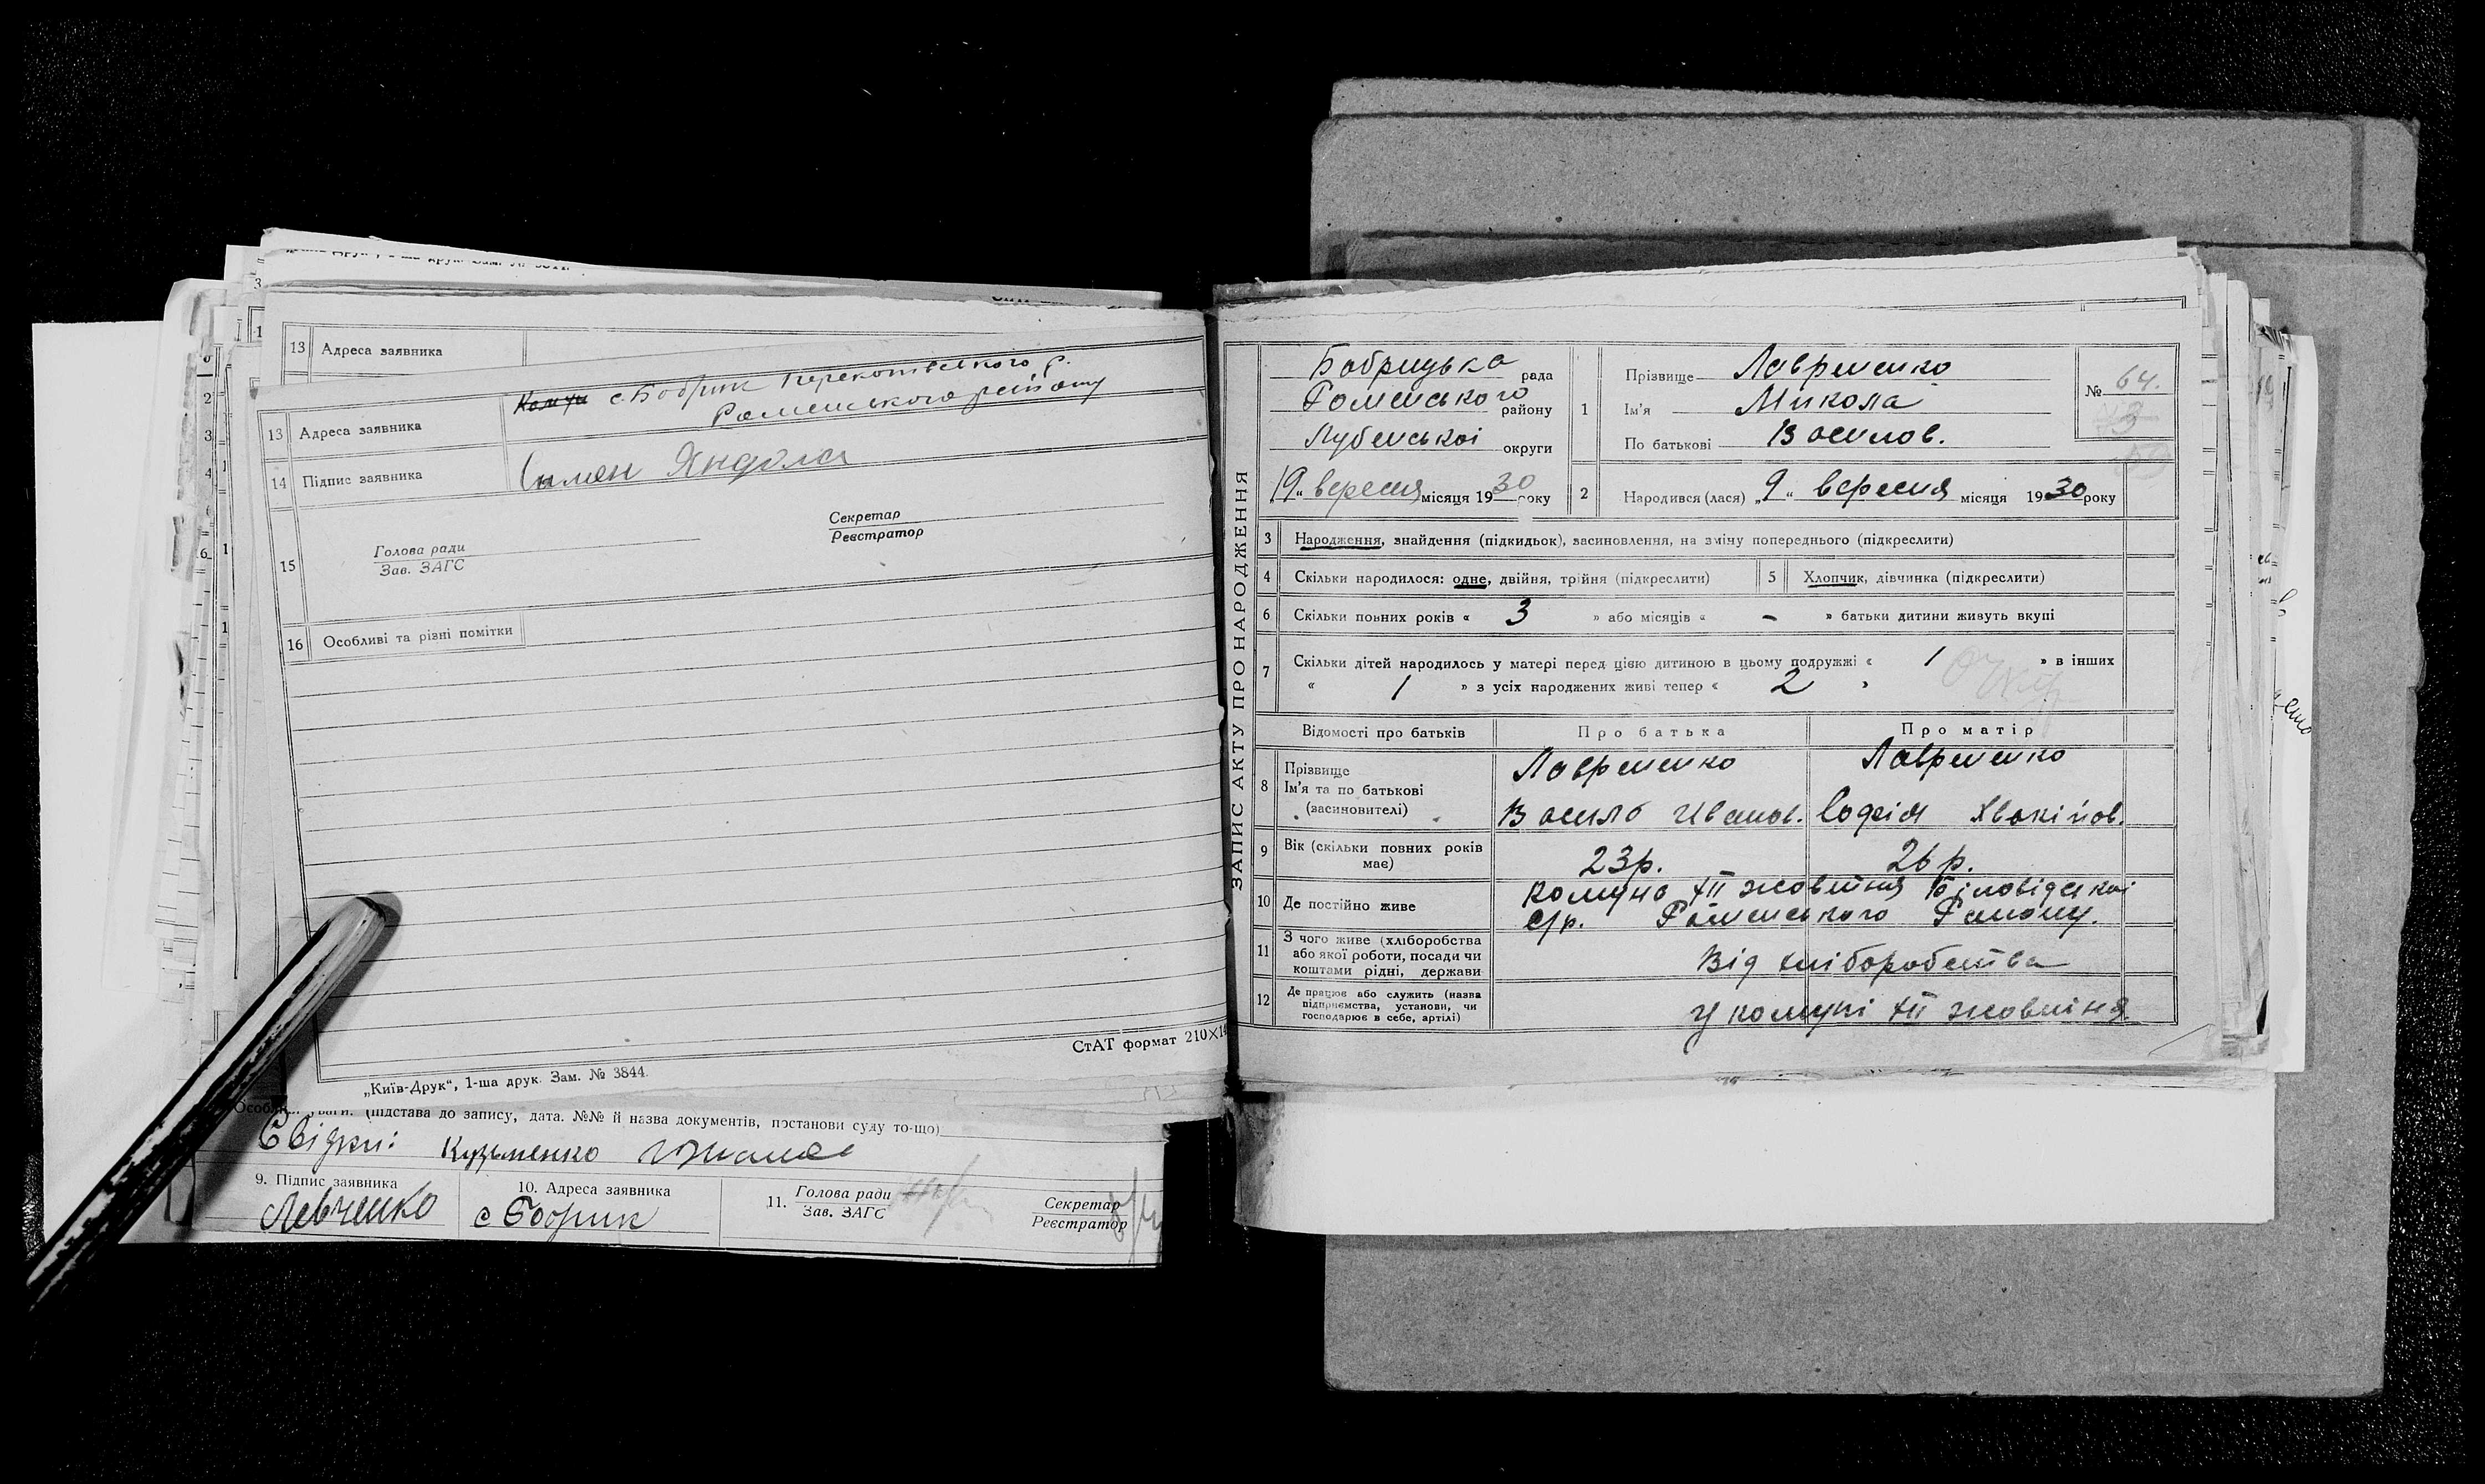 13 Адреса заявника
13 Адреса заявника с. Бобрик Перекопівського р.
Роменського району
14 Підпис заявника Симен Яндола
15 Голова ради
Зав. ЗАГС
Секретар
Реєстратор
16 Особливі та різні помітки
СтАТ формат 210×14
„Київ-Друк“, 1-ша друк. Зам. № 3844.
(підстава до запису, дата. №№ й назва документів, постанови суду то-що)
Свідки: Кузьменко
9. Підпис заявника
Левченко
10. Адреса заявника
с Бобрик
11. Голова ради
Зав. ЗАГС
Секретар
Реєстратор
ЗАПИС АКТУ ПРО НАРОДЖЕННЯ
Бобрицька рада
Роменського району
Лубенської округи
19 „ вересня місяця 1930 року
1 Прізвище Лавриненко
Ім'я Микола
По батькові Василов.
№ 64.
3
2 Народився (лася) „9“ вересня місяця 1930 року
3 Народження, знайдення (підкидьок), засиновлення, на зміну попереднього (підкреслити)
4 Скільки народилося: одне, двійня, трійня (підкреслити)
5 Хлопчик, дівчинка (підкреслити)
6 Скільки повних років « 3 » або місяців « - » батьки дитини живуть вкупі
7 Скільки дітей народилось у матері перед цією дитиною в цьому подружжі « 1 » в інших
« 1 » з усіх народжених живі тепер « 2 »
Відомості про батьків Про батька Про матір
8 Прізвище
Ім'я та по батькові
(засиновителі)
Лавриненко
Василь Иванов.
Лавриненко
Софія Явкійов.
9 Вік (скільки повних років має) 23р. 26 р.
10 Де постійно живе комуна XII жовтня Біловідської
с/р. Роменського Району.
11 З чого живе (хліборобства
або якої роботи, посади чи
коштами рідні, держави
Від хліборобства
12 Де працює або служить (назва
підприємства, установи, чи
господарює в себе, артілі)
У комуні XII жовтня